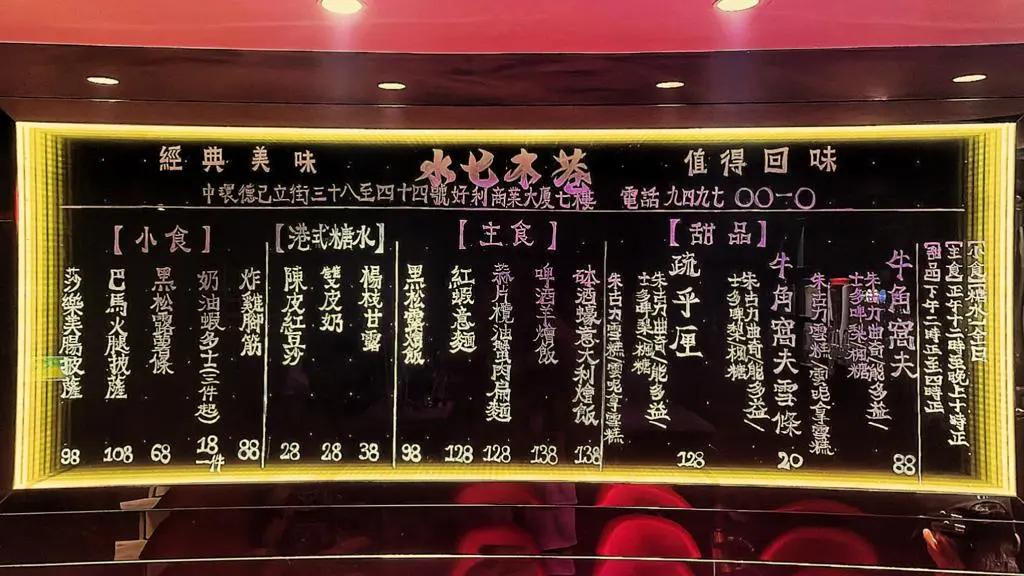 經典美味
水乜木芬
值得回味
中環德己立街三十八至四十四號好利商業大廈七樓
電話 九四九七 〇〇一〇
小食 糖水 全日
【主食】正午十二時至晚上十時正
【甜品】下午二時正至四時正
【甜品】
牛角窩夫
朱古力曲奇/能多益/
士多啤梨/楓糖
朱古力雪糕/雲呢拿雪糕
88
牛角窩夫雪條
20
朱古力曲奇/能多益/
士多啤梨/楓糖
疏乎厘
朱古力曲奇/能多益/
士多啤梨/楓糖
朱古力雪糕/雲呢拿雪糕
128
【主食】
砵酒蠔意大利燴飯
138
啤酒羊燴飯
138
欖油蛋肉扁麵
128
紅蝦意麵
128
黑松露燴飯
98
【港式糖水】
楊枝甘露
38
雙皮奶
28
陳皮紅豆沙
28
【小食】
炸雞腳筋
88
奶油蝦多士(三件起)
18一件
黑松露薯條
68
巴馬火腿披薩
108
莎樂美腸披薩
98